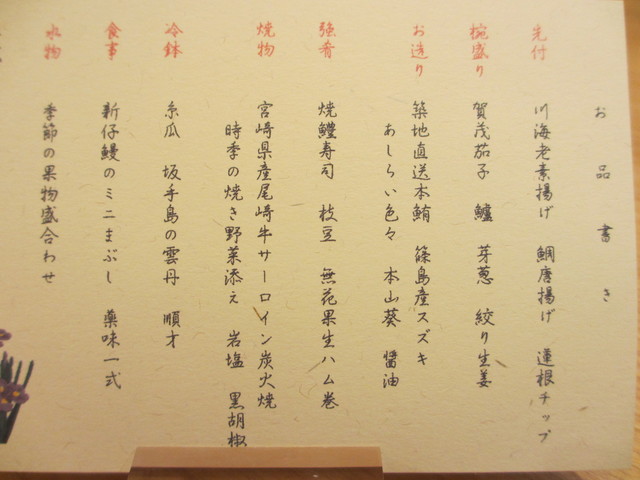 お品書き
先付
川海老素揚げ 鯛唐揚げ 蓮根チップ
椀盛り
賀茂茄子 鱧 芽葱 絞り生姜
お造り
築地直送本鮪 篠島産スズキ
あしらい色々 本山葵 醤油
強肴
焼鱧寿司 枝豆 無花果生ハム巻
焼物
宮崎県産尾崎牛サーロイン炭火焼
時季の焼き野菜添え 岩塩 黒胡椒
冷鉢
糸瓜 坂手島の雲丹 順才
食事
新仔鰻のミニまぶし 薬味一式
水物
季節の果物盛合わせ